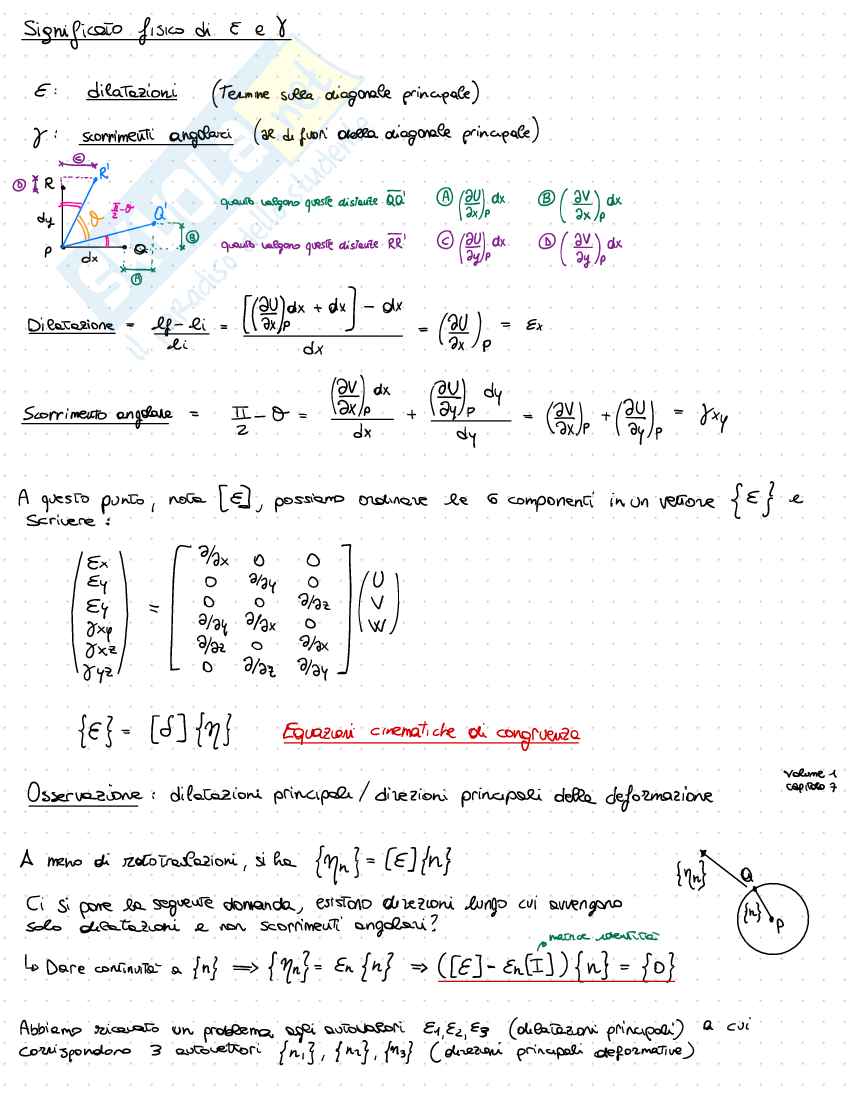 Significato fisico di ε e γ
ε: dilatazioni (Termine sulla diagonale principale)
γ: scorrimenti angolari (al di fuori della diagonale principale)
C
R'
D
R
π/2-θ
Q'
θ
dy
B
P
dx
Q
A
quanto valgono queste distanze QQ' A (∂U/∂x)P dx B (∂V/∂x)P dx
quanto valgono queste distanze RR' C (∂U/∂y)P dx D (∂V/∂y)P dx
Dilatazione = lf-li/li = [(∂U/∂x)P dx + dx] - dx / dx = (∂U/∂x)P = εx
Scorrimento angolare = π/2 - θ = (∂V/∂x)P dx / dx + (∂U/∂y)P dy / dy = (∂V/∂x)P + (∂U/∂y)P = γxy
A questo punto, nota [ε], possiamo ordinare le 6 componenti in un vettore {ε} e
scrivere:
εx ∂/∂x 0 0
εy 0 ∂/∂y 0 U
εy = 0 0 ∂/∂z V
γxy ∂/∂y ∂/∂x 0 W
γxz ∂/∂z 0 ∂/∂x
γyz 0 ∂/∂z ∂/∂y
{ε} = [∂]{η} Equazioni cinematiche di congruenza
Volume 1
capitolo 7
Osservazione: dilatazioni principali/direzioni principali della deformazione
A meno di rototraslazioni, si ha {ηn} = [ε]{n}
{ηn}
Q
{n}
P
Ci si pone la seguente domanda, esistono direzioni lungo cui avvengono
solo dilatazioni e non scorrimenti angolari?
matrice identità
↳ Dare continuità a {n} ⟹ {ηn} = εn {n} ⟹ ([ε] - εn[I]){n} = {0}
Abbiamo ricavato un problema agli autovalori ε1, ε2, ε3 (dilatazioni principali) a cui
corrispondono 3 autovettori {n1}, {n2}, {n3} (direzioni principali deformative)